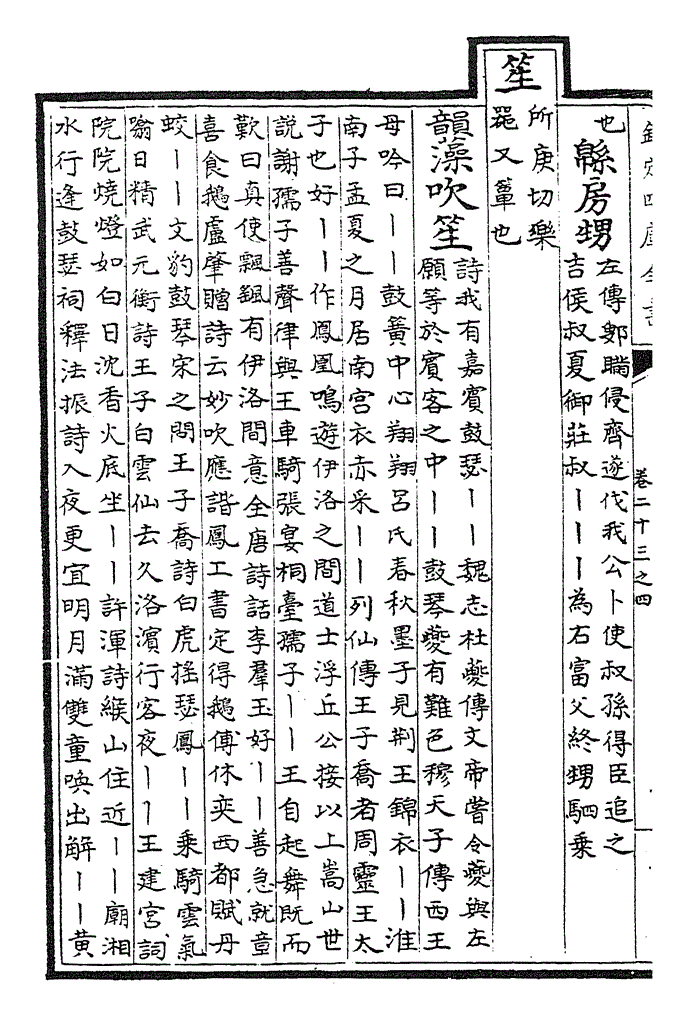 欽定四庫全書
卷二十三之四
也
緜房甥
左傳鄋瞞侵齊遂伐我公卜使叔孫得臣追之
吉侯叔夏御莊叔丨丨丨為右富父終甥駟乘
笙
所庚切樂
噐又簟也
韻藻吹笙
詩我有嘉賓鼓瑟丨丨魏志杜夔傳文帝嘗令夔與左
願等於賓客之中丨丨鼓琴夔有難色穆天子傳西王
母吟曰丨丨鼓簧中心翔翔呂氏春秋墨子見荆王錦衣丨丨淮
南子孟夏之月居南宮衣赤采丨丨列仙傳王子喬者周靈王太
子也好丨丨作鳳凰鳴遊伊洛之間道士浮丘公接以上嵩山世
說謝孺子善聲律與王車騎張宴桐臺孺子丨丨王自起舞既而
歎曰真使飄颻有伊洛間意全唐詩話李羣玉好丨丨善急就章
喜食鵝盧肇贈詩云妙吹應諧鳳工書定得鵝傅休奕西都賦丹
蛟丨丨文豹鼓琴宋之問王子喬詩白虎搖瑟鳳丨丨乘騎雲氣
噏日精武元衡詩王子白雲仙去久洛濱行客夜丨丨王建宮詞
院院燒燈如白日沈香火底坐丨丨許渾詩緱山住近丨丨廟湘
水行逢鼓瑟祠釋法振詩入夜更宜明月滿雙童喚出解丨丨黄